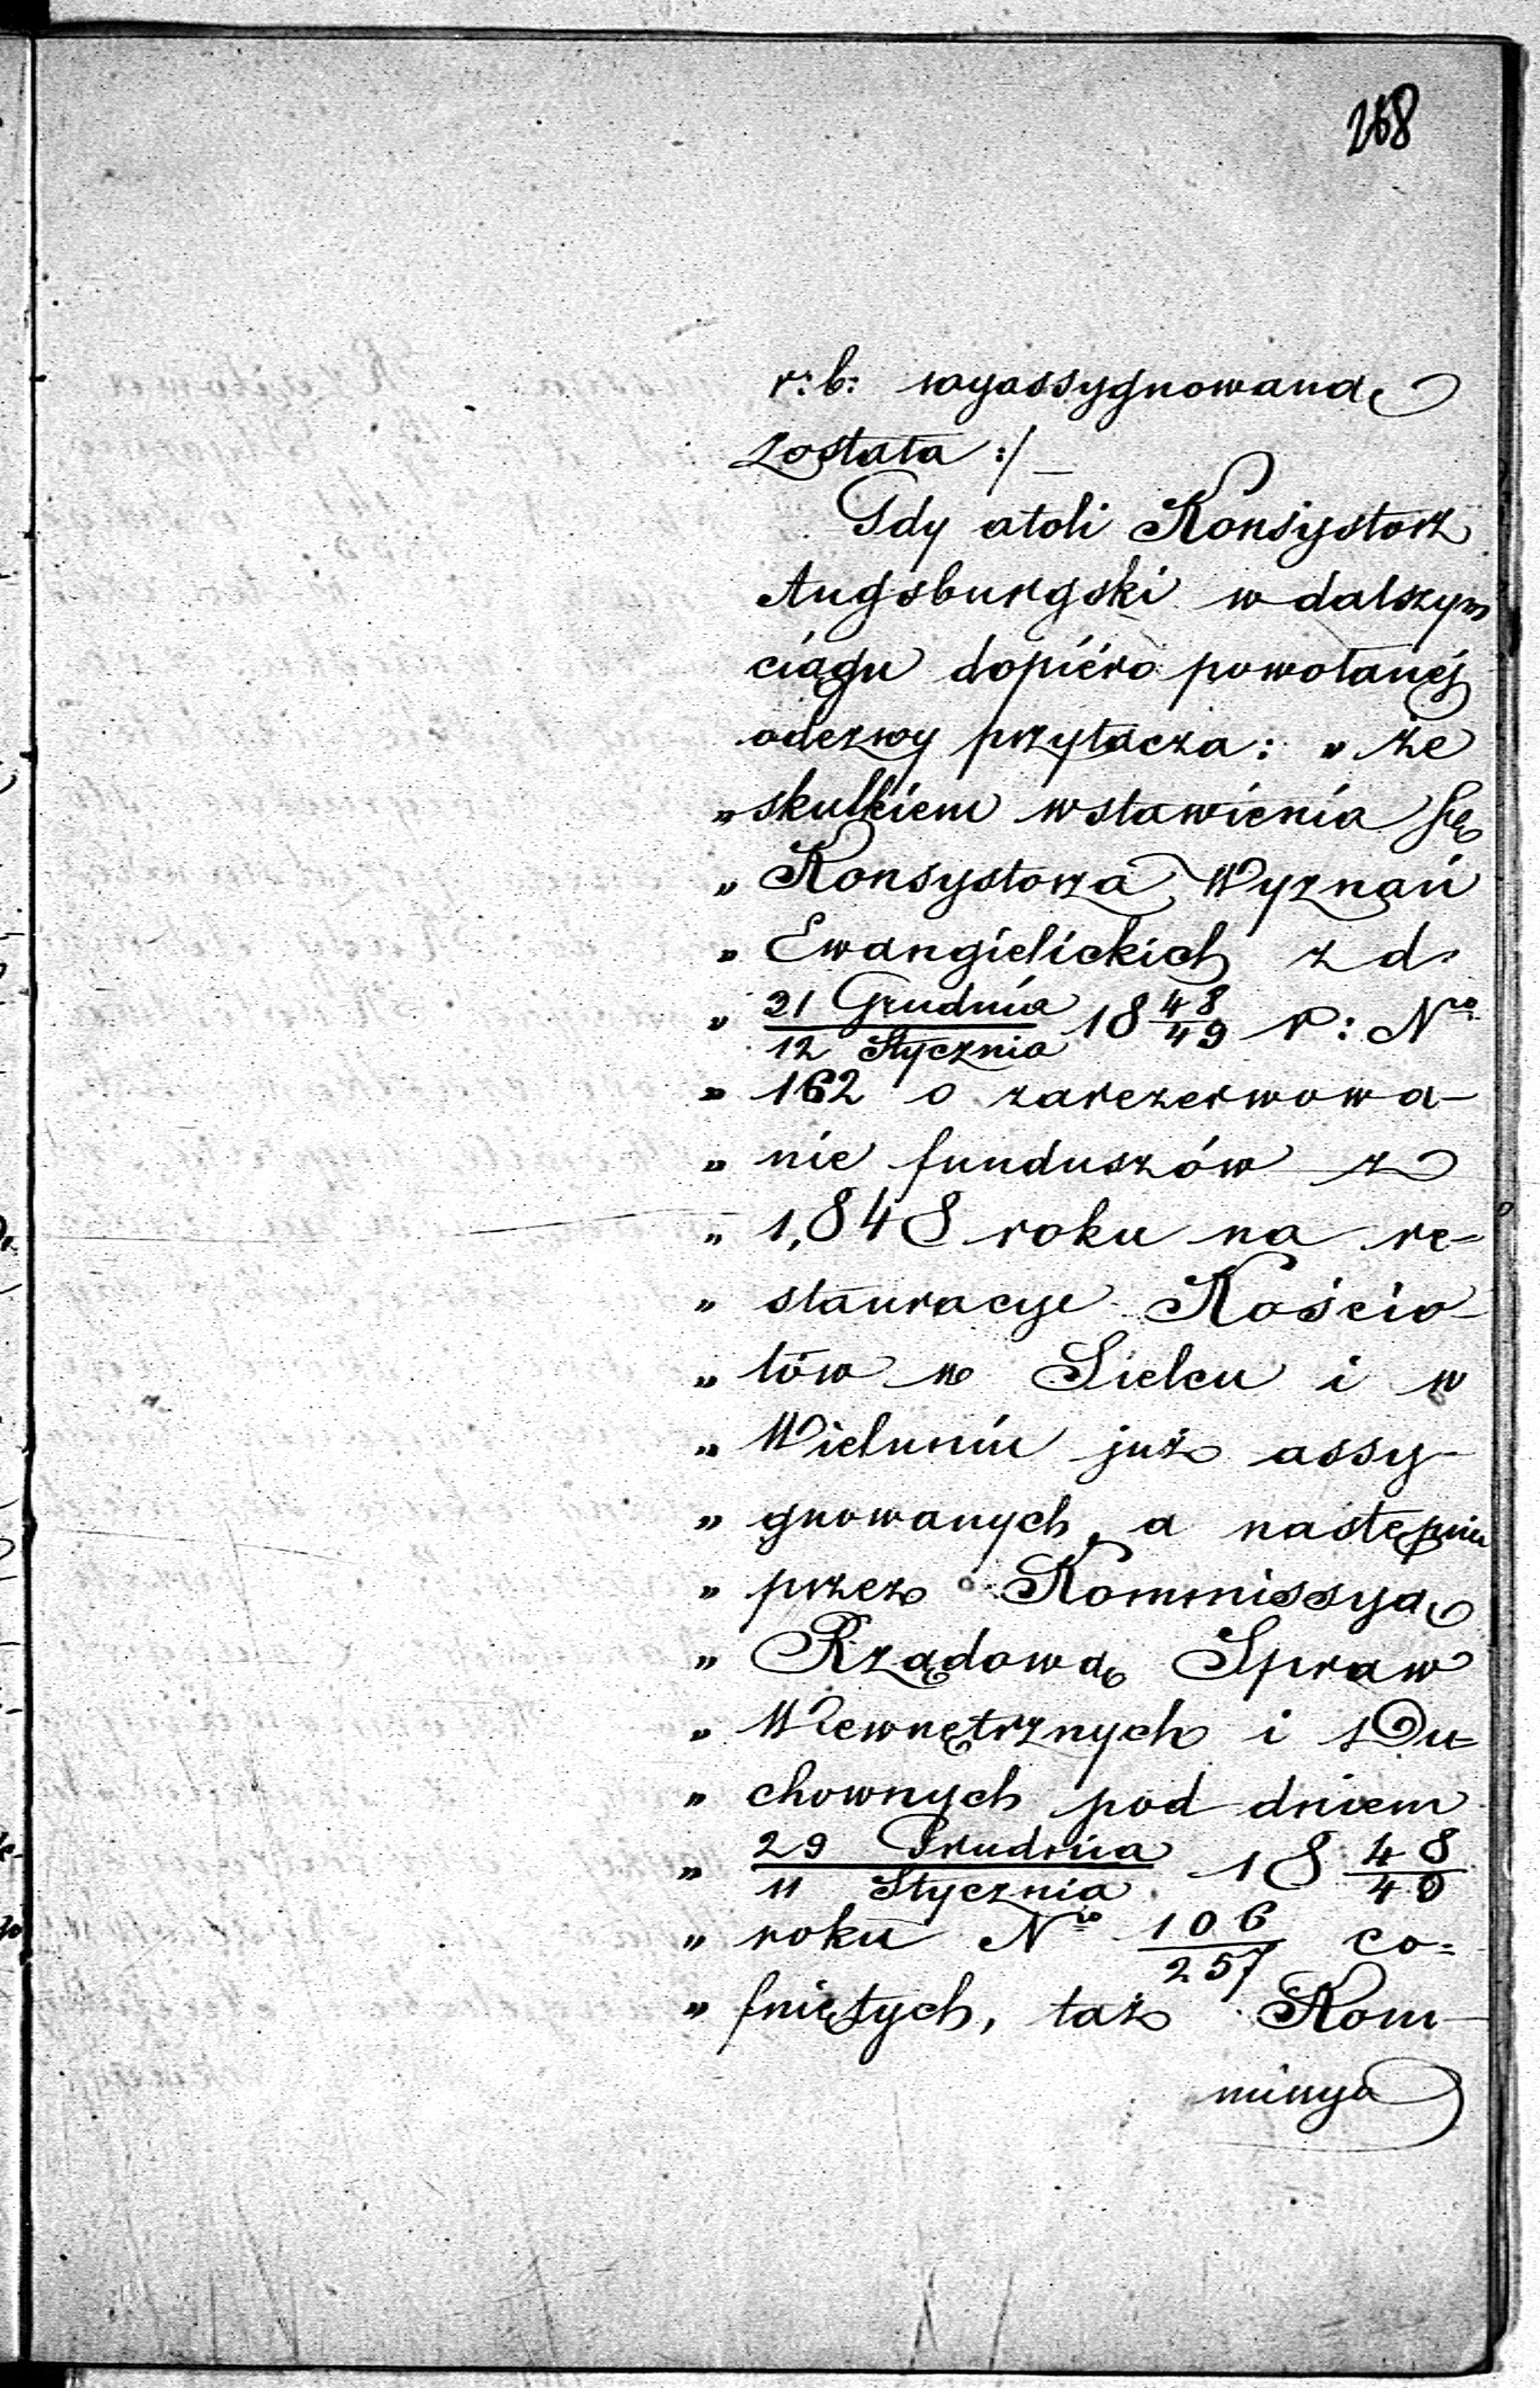 268
r: b: wyassygnowaną
została :/ —
Gdy atoli Konsystorz
Augsburgski w dalszym
ciągu dopiéro powołanéj
odezwy przytacza: „ że
„ skutkiem wstawienia się
„ Konsystorza Wyznań
„ Ewangielickich z d.
„ 31 Grudnia / 12 Stycznia 18 48/49 r: Nro
„ 162 o zarezerwowa-
„ nie funduszów z
„ 1,848 roku na re=
„ stauracye Kościo-
„ łów w Sielcu i w
„ Wieluniu już assy-
„ gnowanych, a następnie
„ przez Kommissyą
„ Rządową Spraw
„ Wewnętrznych i Du=
„ chownych pod dniem
„ 29 Grudnia / 11 Stycznia 18 48/49
„ roku Nro 106/257 co=
„ fniętych, taż Kom-
missya